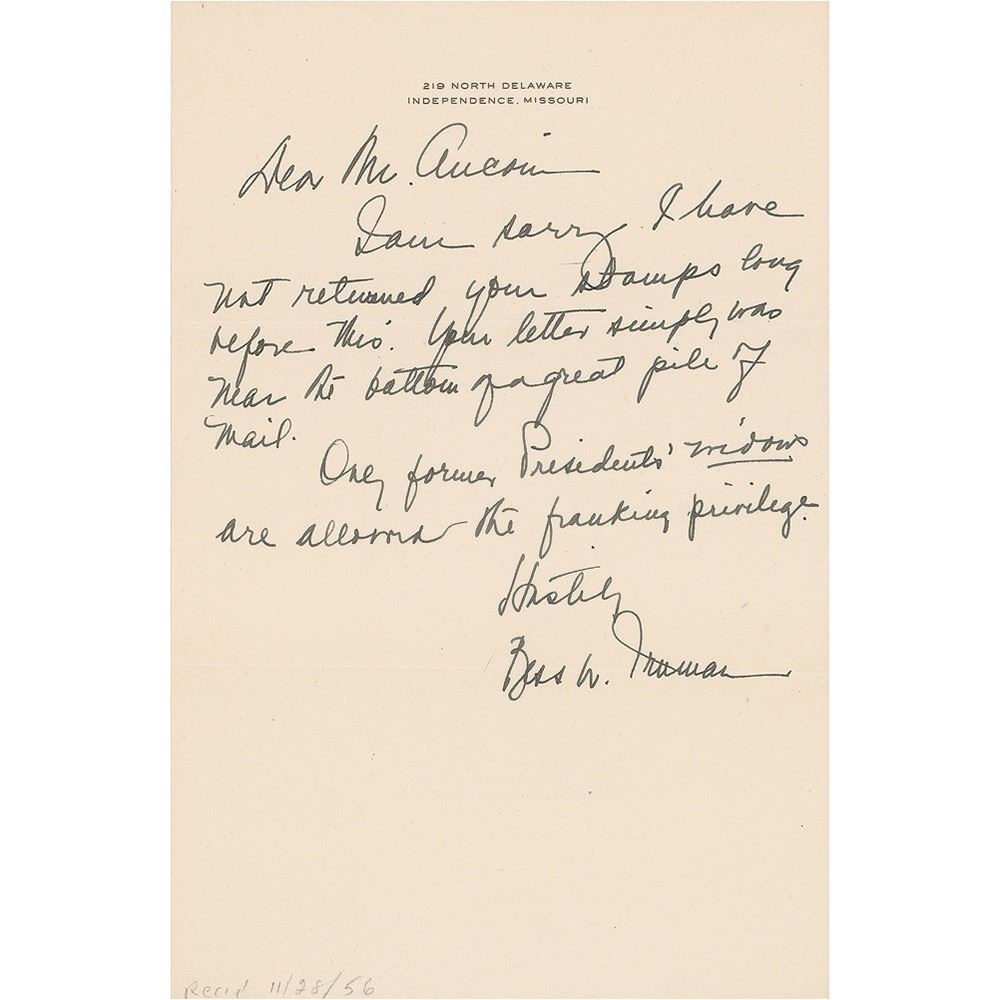 219 NORTH DELAWARE
INDEPENDENCE, MISSOURI
Dear Mr. Aucoin
I am sorry I have
not returned your stamps long
before this. Your letter simply was
near the bottom of a great pile of
mail.
Only former Presidents' widows
are allowed the franking privilege.
Hastily
Bess W. Truman
Rec'd 11/28/56